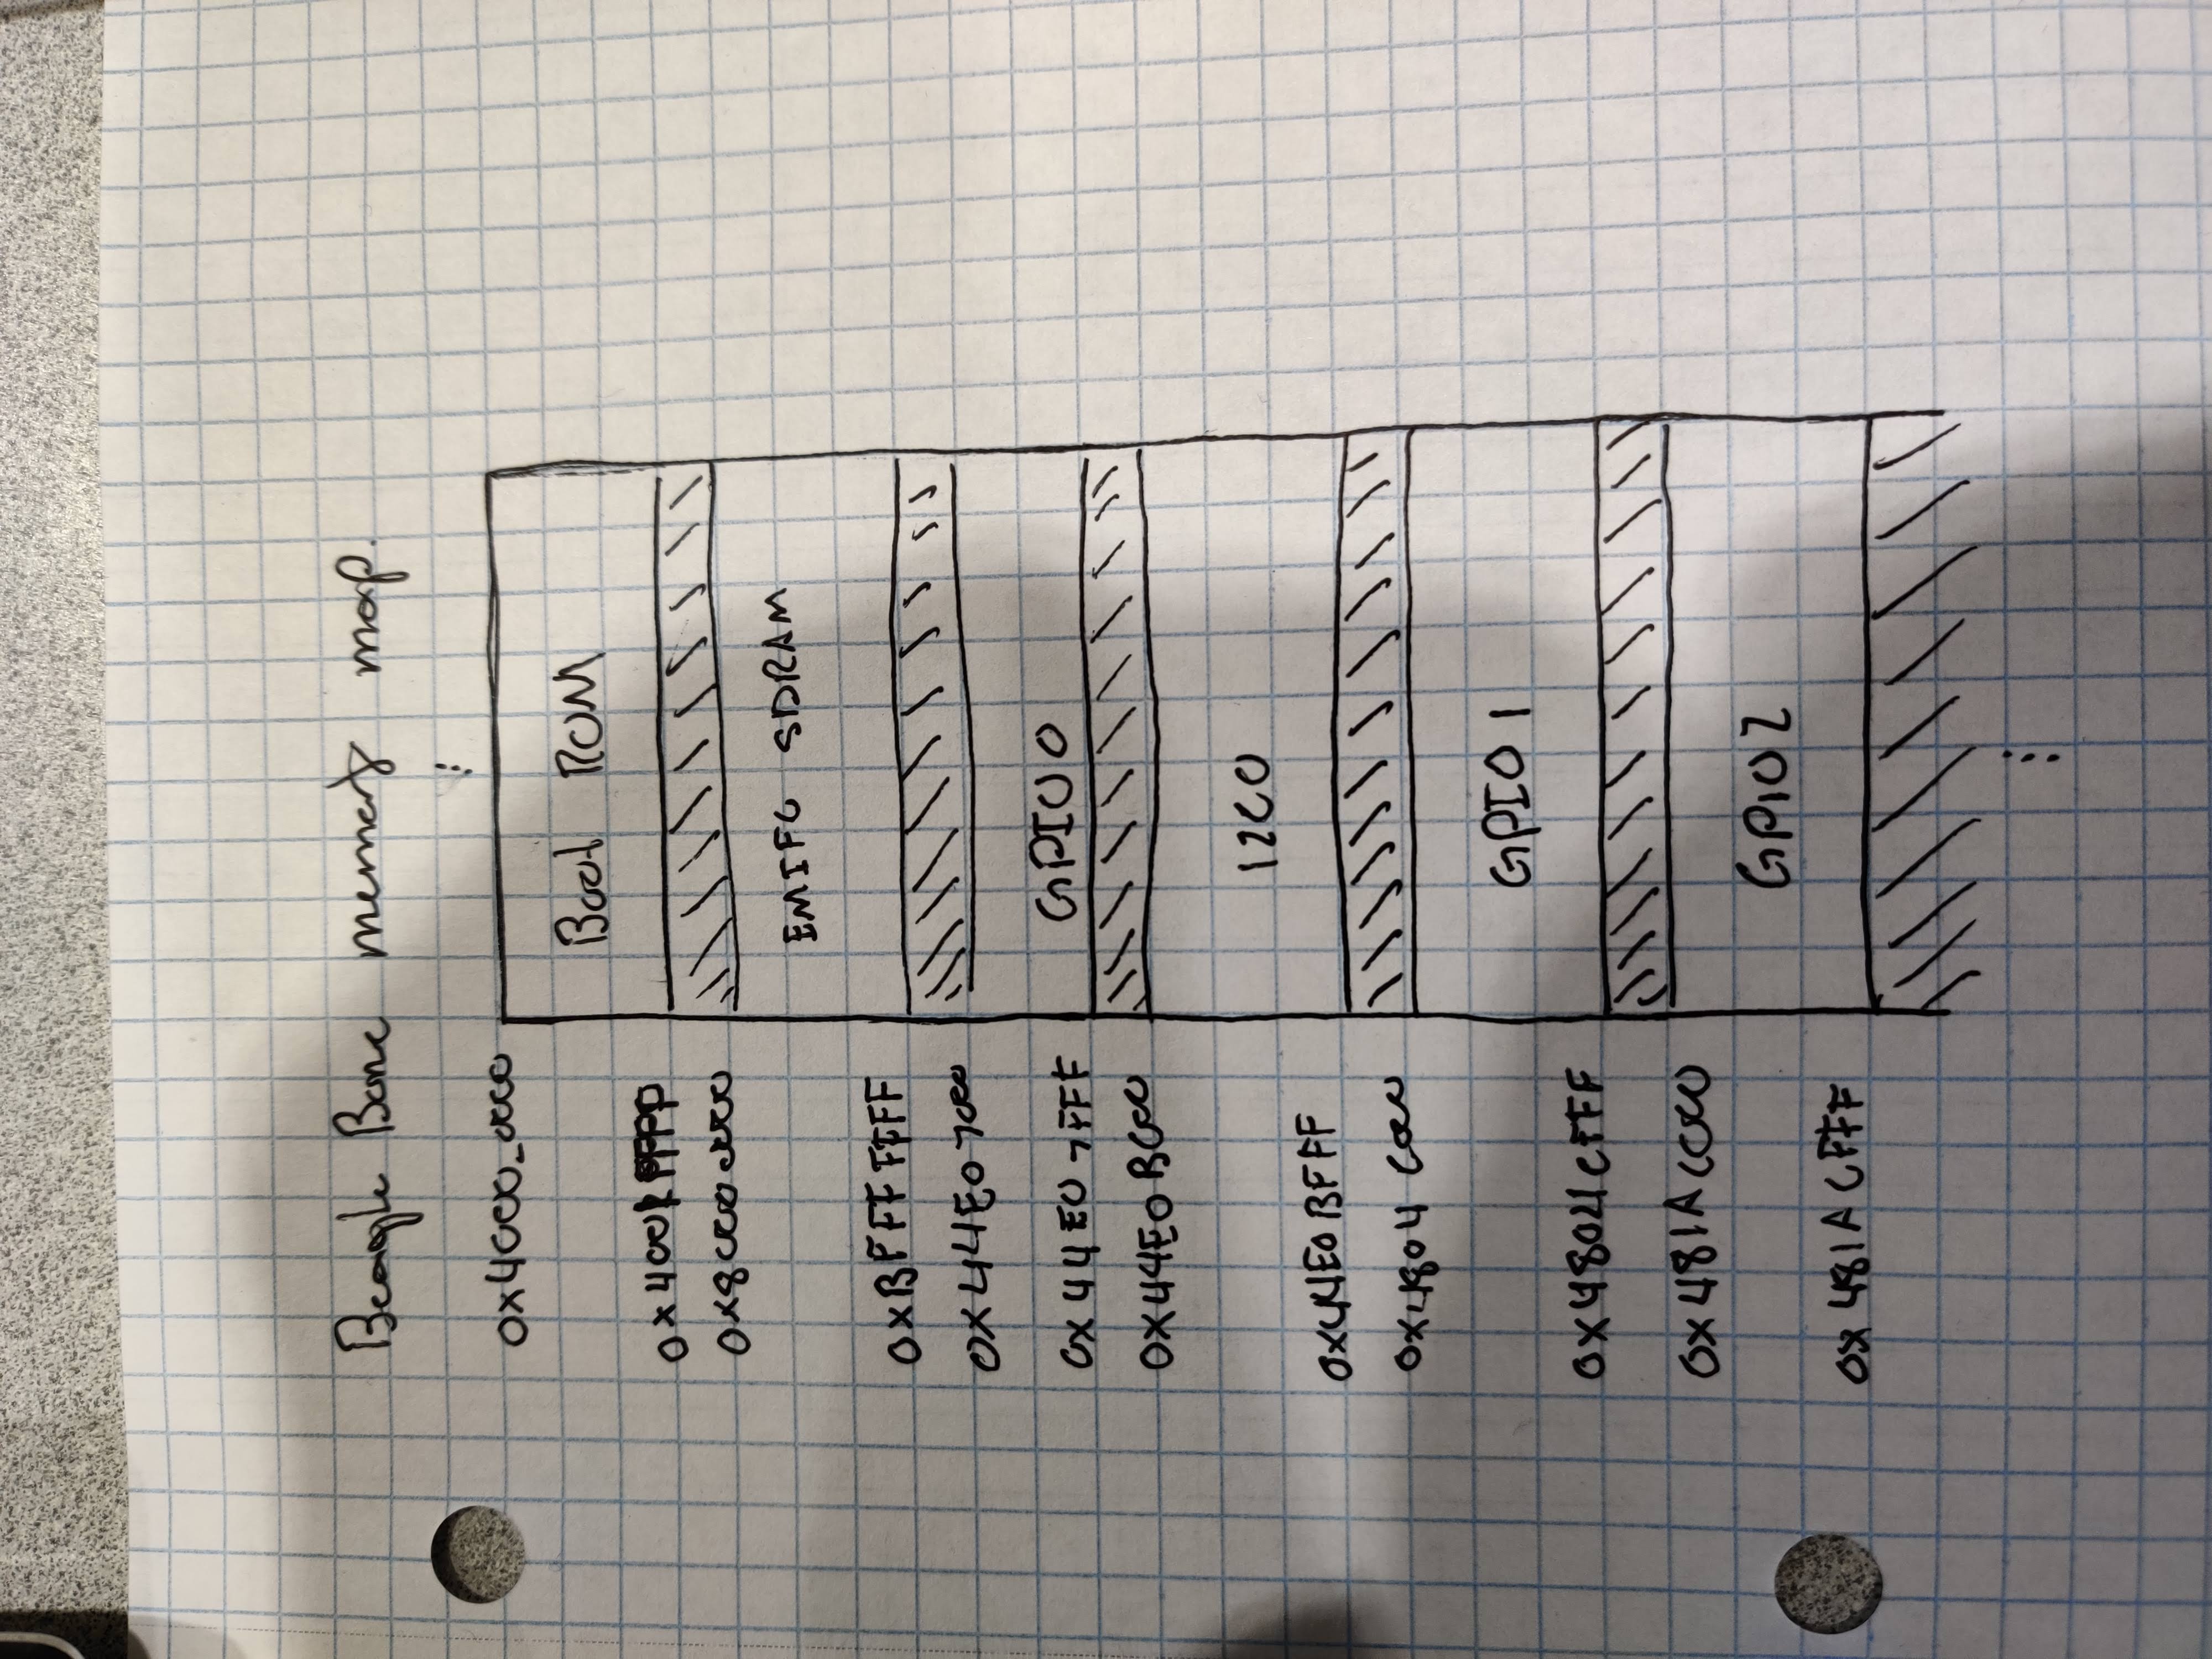 Beagle Bone memory map.
0x4000_0000
Boot ROM
0x8000 0000
EMIF0 SDRAM
0xBFFF FFFF
0x44E0 7000
GPIO 0
0x44E0 7FFF
0x44E0 B000
I2C0
0x44E0 BFFF
0x4804 C000
GPIO 1
0x4804 CFFF
0x481A C000
GPIO 2
0x481A CFFF